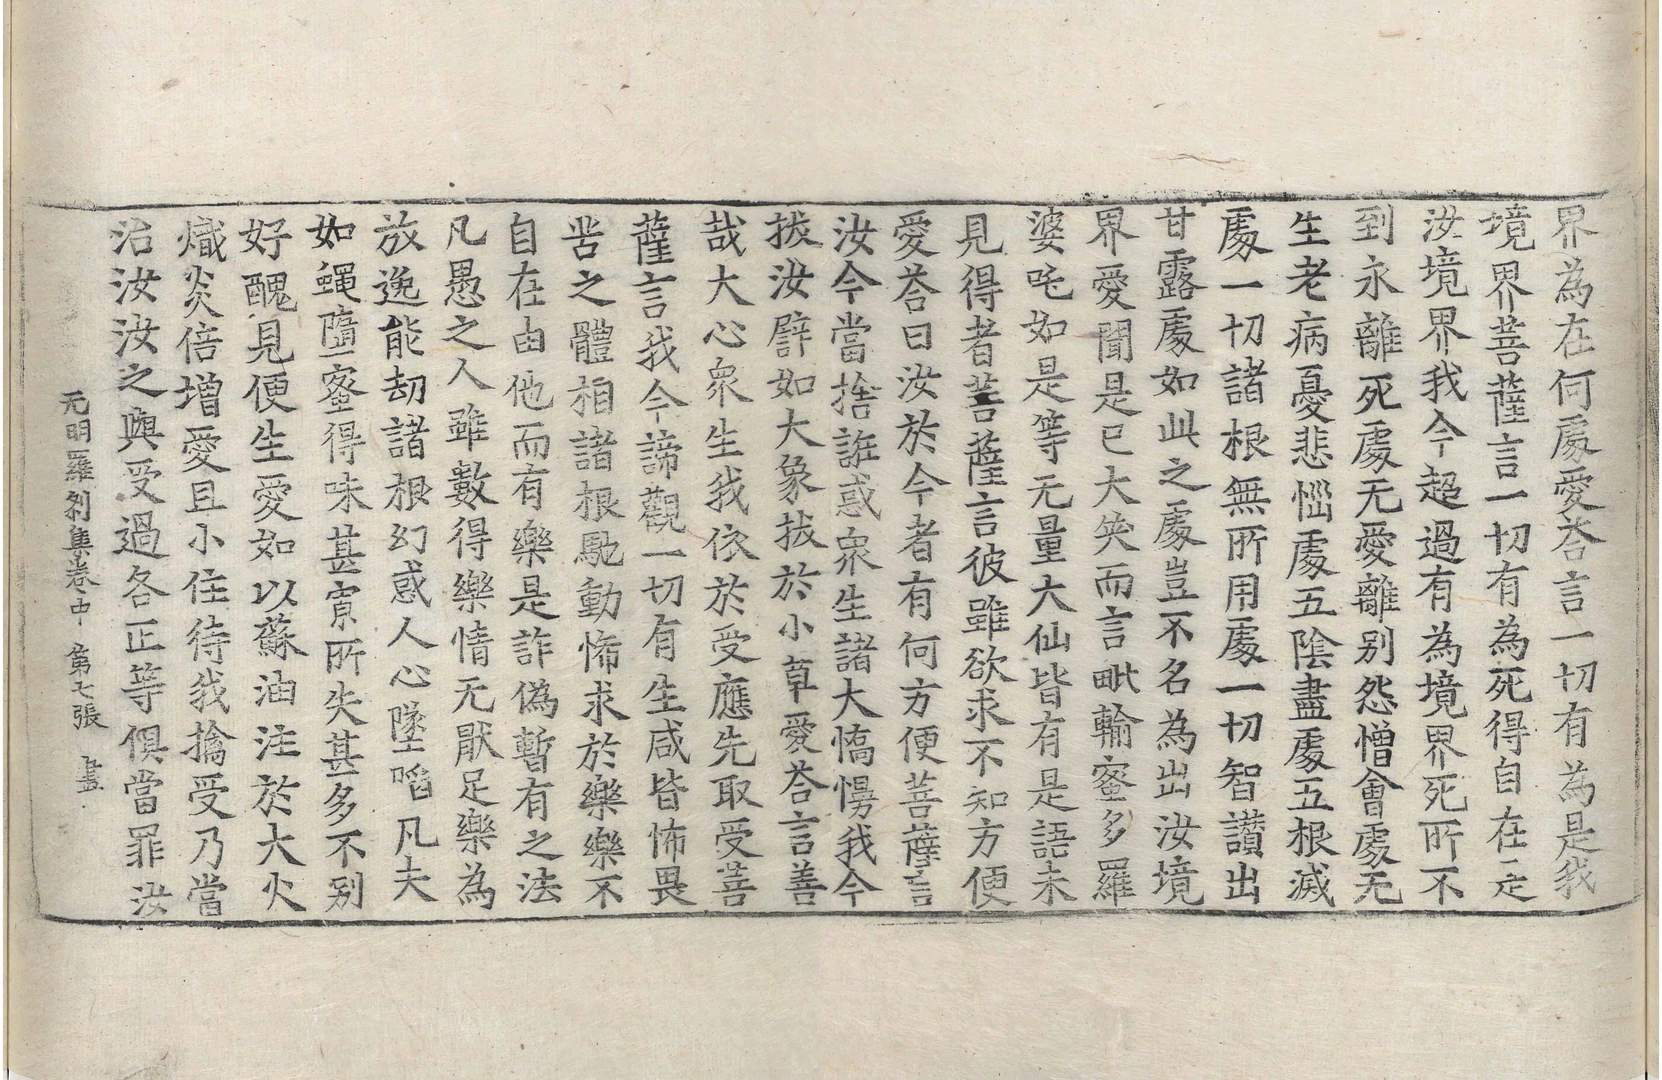 界為在何處愛荅言一切有為是我
境界菩薩言一切有為死得自在是
汝境界我今超過有為境界死所不
到永離死處无愛離別怨憎會處无
生老病憂悲惱處五陰盡處五根滅
處一切諸根無所用處一切智讃出
甘露處如此之處豈不名為出汝境
界愛聞是已大笑而言毗輸蜜多羅
婆吒如是等无量大仙皆有是語未
見得者菩薩言彼雖欲求不知方便
愛荅曰汝於今者有何方便菩薩言
汝今當捨誑惑衆生諸大憍慢我今
拔汝譬如大象拔於小草愛荅言善
哉大心衆生我依於受應先取受菩
薩言我今諦觀一切有生咸皆怖畏
苦之體相諸根馳動怖求於樂樂不
自在由他而有樂是詐偽暫有之法
凡愚之人雖數得樂情无猒足樂為
放逸能劫諸根幻惑人心墜啗凡夫
如蝇墮蜜得味甚寡所失甚多不別
好醜見便生愛如以蘇油注於大火
熾炎倍增愛且小住待我擒受乃當
治汝汝之與受過各正等俱當罪汝
元明羅刹集卷中 第七張 盡